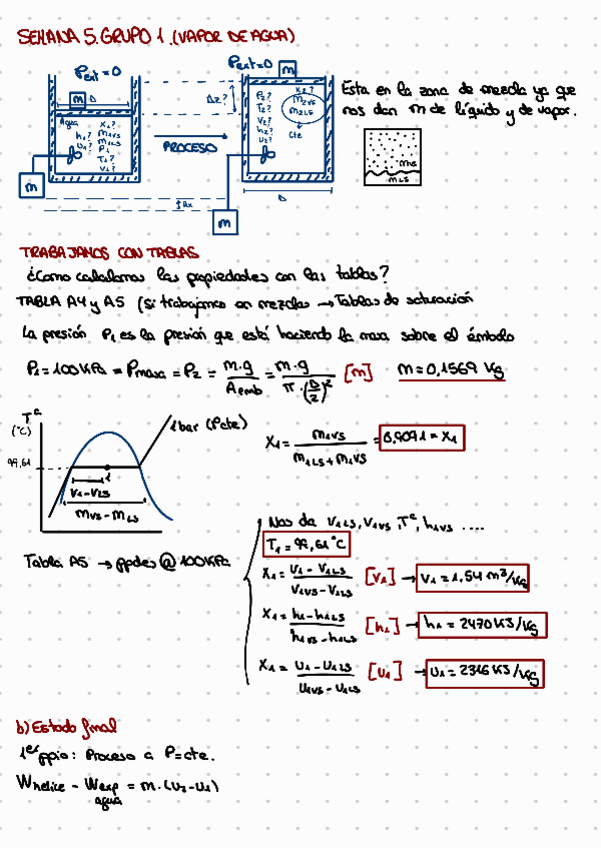 SEMANA 5. GRUPO 1. (VAPOR DE AGUA)
Pext = 0
Pext = 0
m
m
D
Δz?
Agua
X1?
m1VS
m1LS
P1
T1?
V1?
h1?
u1?
P2?
T2?
V2?
h2?
u2?
X2?
m2VS
m2LS
Cte
PROCESO
m
m
D
Esta en la zona de mezcla ya que
nos dan m de líquido y de vapor.
mLS
TRABAJAMOS CON TABLAS
¿Como calculamos las propiedades con las tablas?
TABLA A4 y A5 (Si trabajamos en mezclas → Tablas de saturación
La presión P1 es la presión que está haciendo la masa sobre el émbolo
P1 = 100 KPa = Pmasa = P2 = m·g / Aemb = m·g / π·(D/2)² [m] m = 0,1569 Kg
Tª
(°C)
1 bar (Pcte)
99,61
1
V1 - VLS
mVS - mLS
X1 = m1VS / m1LS + m1VS = 0,9091 = X1
Nos da V1LS, V1VS, Tª, h1VS ....
T1 = 99,61 °C
Tabla A5 → ppdes @ 100 KPa
X1 = V1 - V1LS / V1VS - V1LS [V1] → V1 = 1,54 m³/Kg
X1 = h1 - h1LS / h1VS - h1LS [h1] → h1 = 2470 KJ/Kg
X1 = U1 - U1LS / U1VS - U1LS [U1] → U1 = 2316 KJ/Kg
b) Estado final
1er ppio: Proceso a P=cte.
Whelice - Wexp agua = m·(U2 - U1)